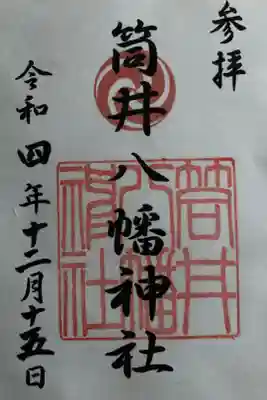 参拝
筒井八幡神社
筒井八幡神社
令和四年十二月十五日